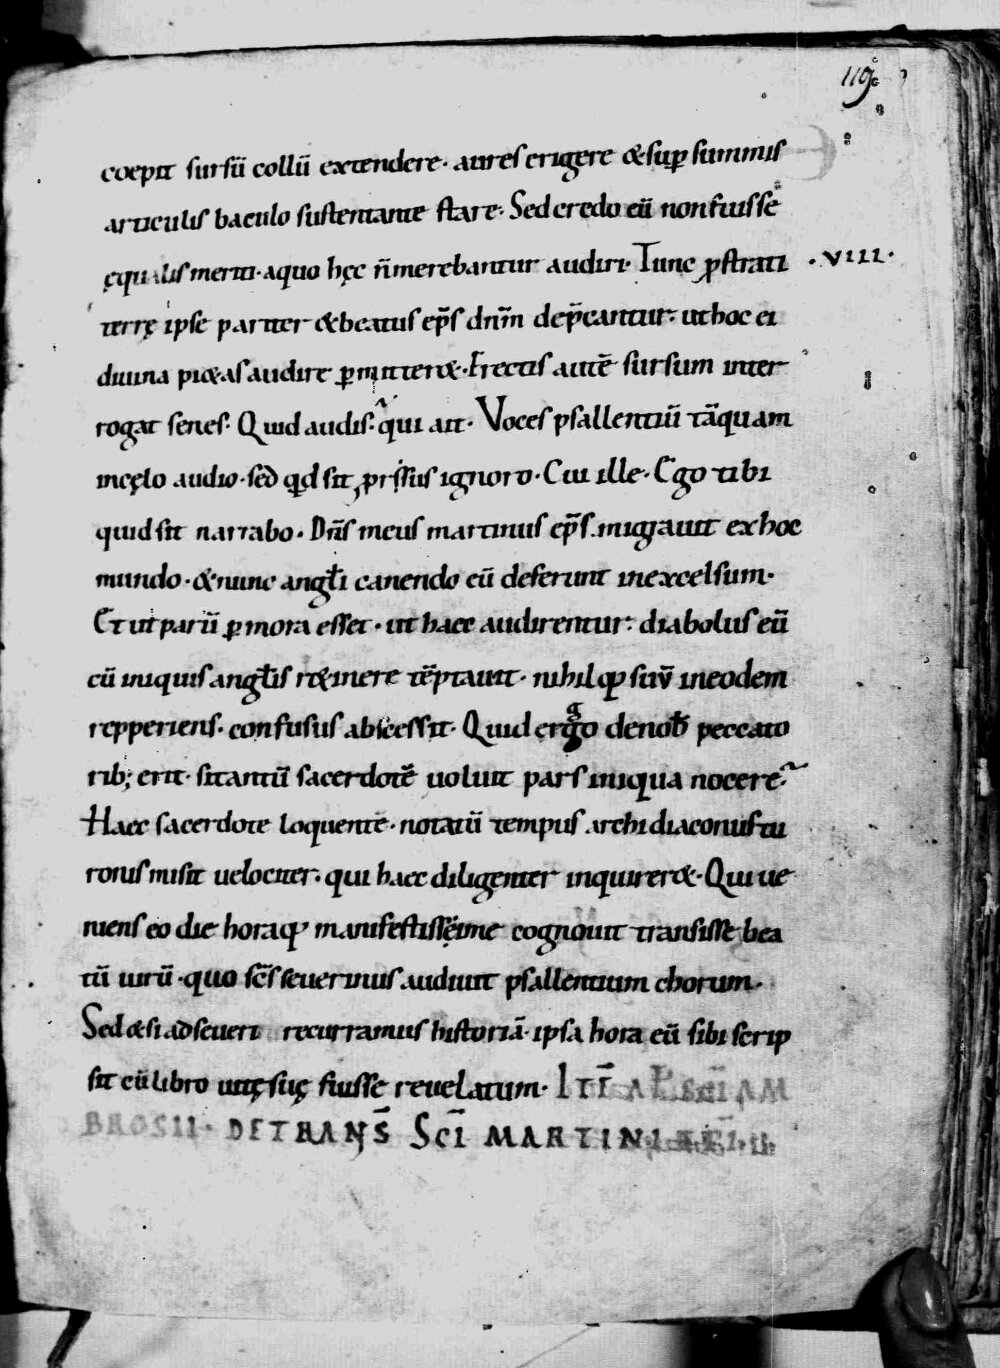 119
coepit sursū collū extendere· aures erigere &sup̄ summis
articulis baculo sustentante stare· Sedcredo eū nonfuisse
ęqualis meriti· aquo hęc n̄merebantur audiri· Tunc p̄strati ·VIII·
terrę ipse pariter &beatus ep̄s dn̄m dep̄cantur· uthoc ei
diuina pi&as audire ꝑmitter&· Erectis autē sursum inter
rogat senes· Quid audis· qui ait· Voces psallentiū tāquam
incęlo audio· sed qd sit prorsus ignoro· Cui ille· Ego tibi
quid sit narrabo· Dn̄s meus martinus ep̄s migrauit exhoc
mundo· &nunc angłi canendo eū deferunt inexcelsum·
Et ut parū ꝑmora esset· ut haec audirentur· diabolus eū
cū iniquis angłis r&inere tēptauit· nihilq; suū ineodem
repperiens· confusus abscessit· Quid ergo denob̄ peccato
rib; erit· sitantū sacerdotē uoluit pars iniqua nocere·
Haec sacerdote loquente· notatū tempus archidiaconus tu
ronis misit uelociter· qui haec diligenter inquirer&· Qui ue
niens eo die horaq; manifestissime cognouit transisse bea
tū uirū· quo sc̄s seuerinus audiuit psallentium chorum·
Sed &si adseueri recurramus historiā· ipsa hora eū sibi scrip
sit cū libro uitę suę fuisse reuelatum· ITĒ APSCĪAM
BROSII· DETRANS̄ SCĪ MARTINI